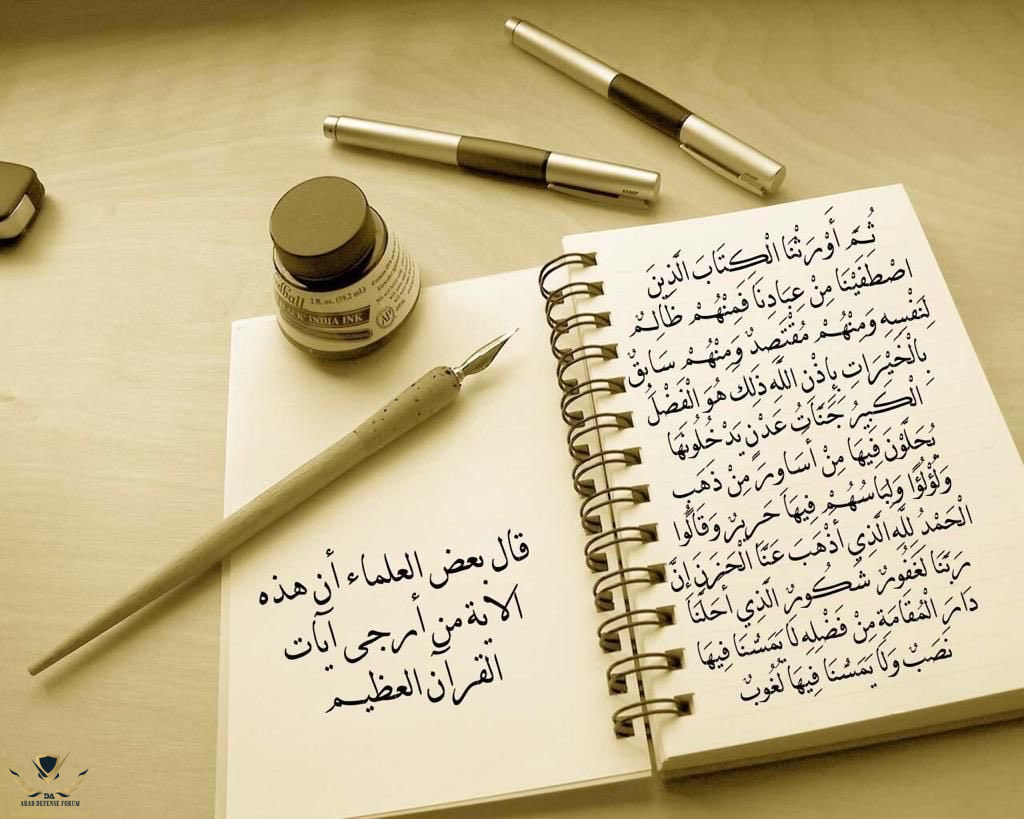 ثُمَّ أَوْرَثْنَا الْكِتَابَ الَّذِينَ
اصْطَفَيْنَا مِنْ عِبَادِنَا فَمِنْهُمْ ظَالِمٌ
لِّنَفْسِهِ وَمِنْهُمْ مُقْتَصِدٌ وَمِنْهُمْ سَابِقٌ
بِالْخَيْرَاتِ بِإِذْنِ اللَّهِ ذَلِكَ هُوَ الْفَضْلُ
الْكَبِيرُ جَنَّاتُ عَدْنٍ يَدْخُلُونَهَا
يُحَلَّوْنَ فِيهَا مِنْ أَسَاوِرَ مِنْ ذَهَبٍ
وَلُؤْلُؤًا وَلِبَاسُهُمْ فِيهَا حَرِيرٌ وَقَالُوا
الْحَمْدُ لِلَّهِ الَّذِي أَذْهَبَ عَنَّا الْحَزَنَ إِنَّ
رَبَّنَا لَغَفُورٌ شَكُورٌ الَّذِي أَحَلَّنَا
دَارَ الْمُقَامَةِ مِنْ فَضْلِهِ لَا يَمَسُّنَا فِيهَا
نَصَبٌ وَلَا يَمَسُّنَا فِيهَا لُغُوبٌ
قال بعض العلماء أن هذه
الاية من أرجى آيات
القرآن العظيم
2 fl. oz. (59,2 mL)
BLACK INDIA INK
AP
DA
ARAB DEFENSE FORUM